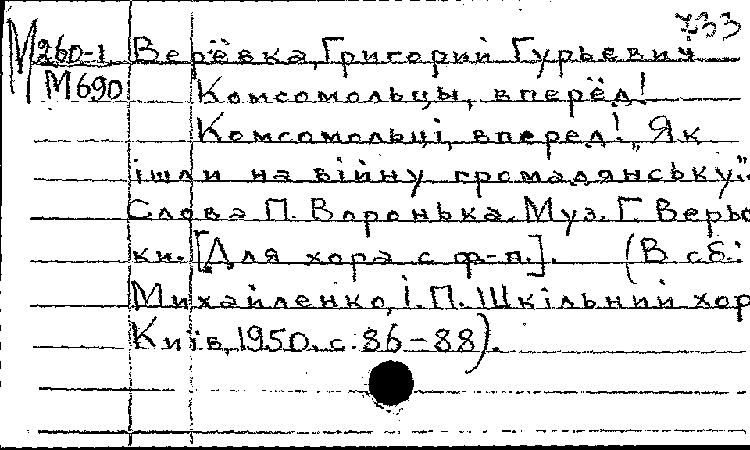 733
М260-1 Верёвка, Григорий Гурьевич
М690 Комсомольцы, вперёд!
Комсомольці, вперед! „Як
ішли на війну громадянську".
Слова П. Воронька. Муз. Г. Верьо
ки. [Для хора с ф-п.]. (В сб.:
Михайленко, І. П. Шкільний хор
Київ, 1950. с. 86-88).